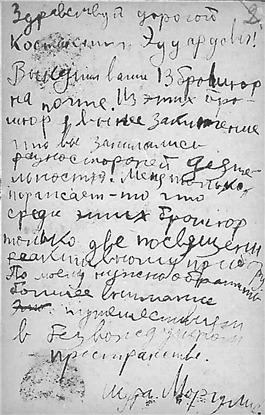 Здравствуй дорогой
Константин Эдуардович!
Выкупил ваши 13 брошюр
на почте. Из этих бро-
шюр я вынес заключение
что вы занимались
разносторонней деяте-
льностью. Меня только
поражает то что
среди этих брошюр
только две посвящены
реактивному
По моему нужно обратить
большее внимание
путешествиям
в безвоздушном
пространстве.